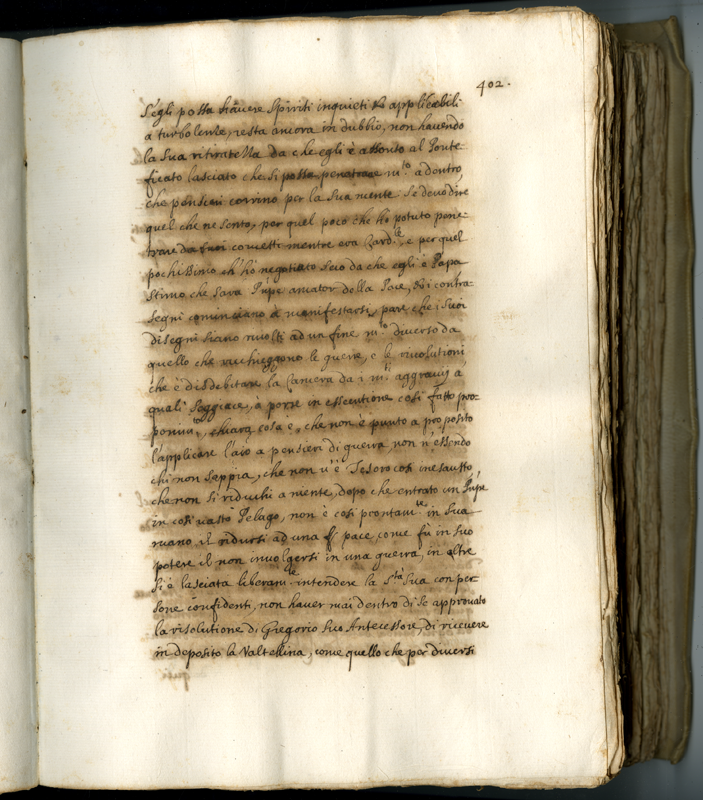 402.
S'egli possa havere Spiriti inquieti et applicabili
a turbolenze, resta ancora in dubbio, non havendo
la Sua ritiratezza da che egli è assonto al Ponte
ficato lasciato che si possa penetrare m.to a dentro,
che pensieri corrino per la Sua mente. Se devo dire
quel che ne sento, per quel poco che hò potuto pene
trare da suoi concetti mentre era Card.le, e per quel
pochissimo ch'hò negotiato Seco da che egli è Papa
Stimo che Sarà Prñpe amator della Pace, et i contra-
segni cominciano à manifestarsi, pare che i Suoi
disegni Siano rivolti ad un fine m.to diverso da
quello che racchieggono le guerre, e le rivolutioni
che è disdebitare la Camera da i m.ti aggravij a
quali Soggiace, à porre in essecutione così fatto pro-
ponim.to, chiara cosa è, che non è punto a proposito
l'applicare l'aio a pensieri di guerra, non v'essendo
chi non Seppia, che non v'è Tesoro così inesausto,
che non si riduchi a niente, dopo che entrato un Prñpe
in così vasto Pelago, non è così prontam.te in Sua
mano il ridursi ad una pace, come fù in Suo
potere il non involgersi in una guerra, in oltre
Si è lasciata liberam.te intendere la S.tà Sua con per
sone confidenti, non haver mai dentro di Se approvato
la risolutione di Gregorio Suo Antecessore, di ricevere
in deposito la Valtellina, come quello che per diversi